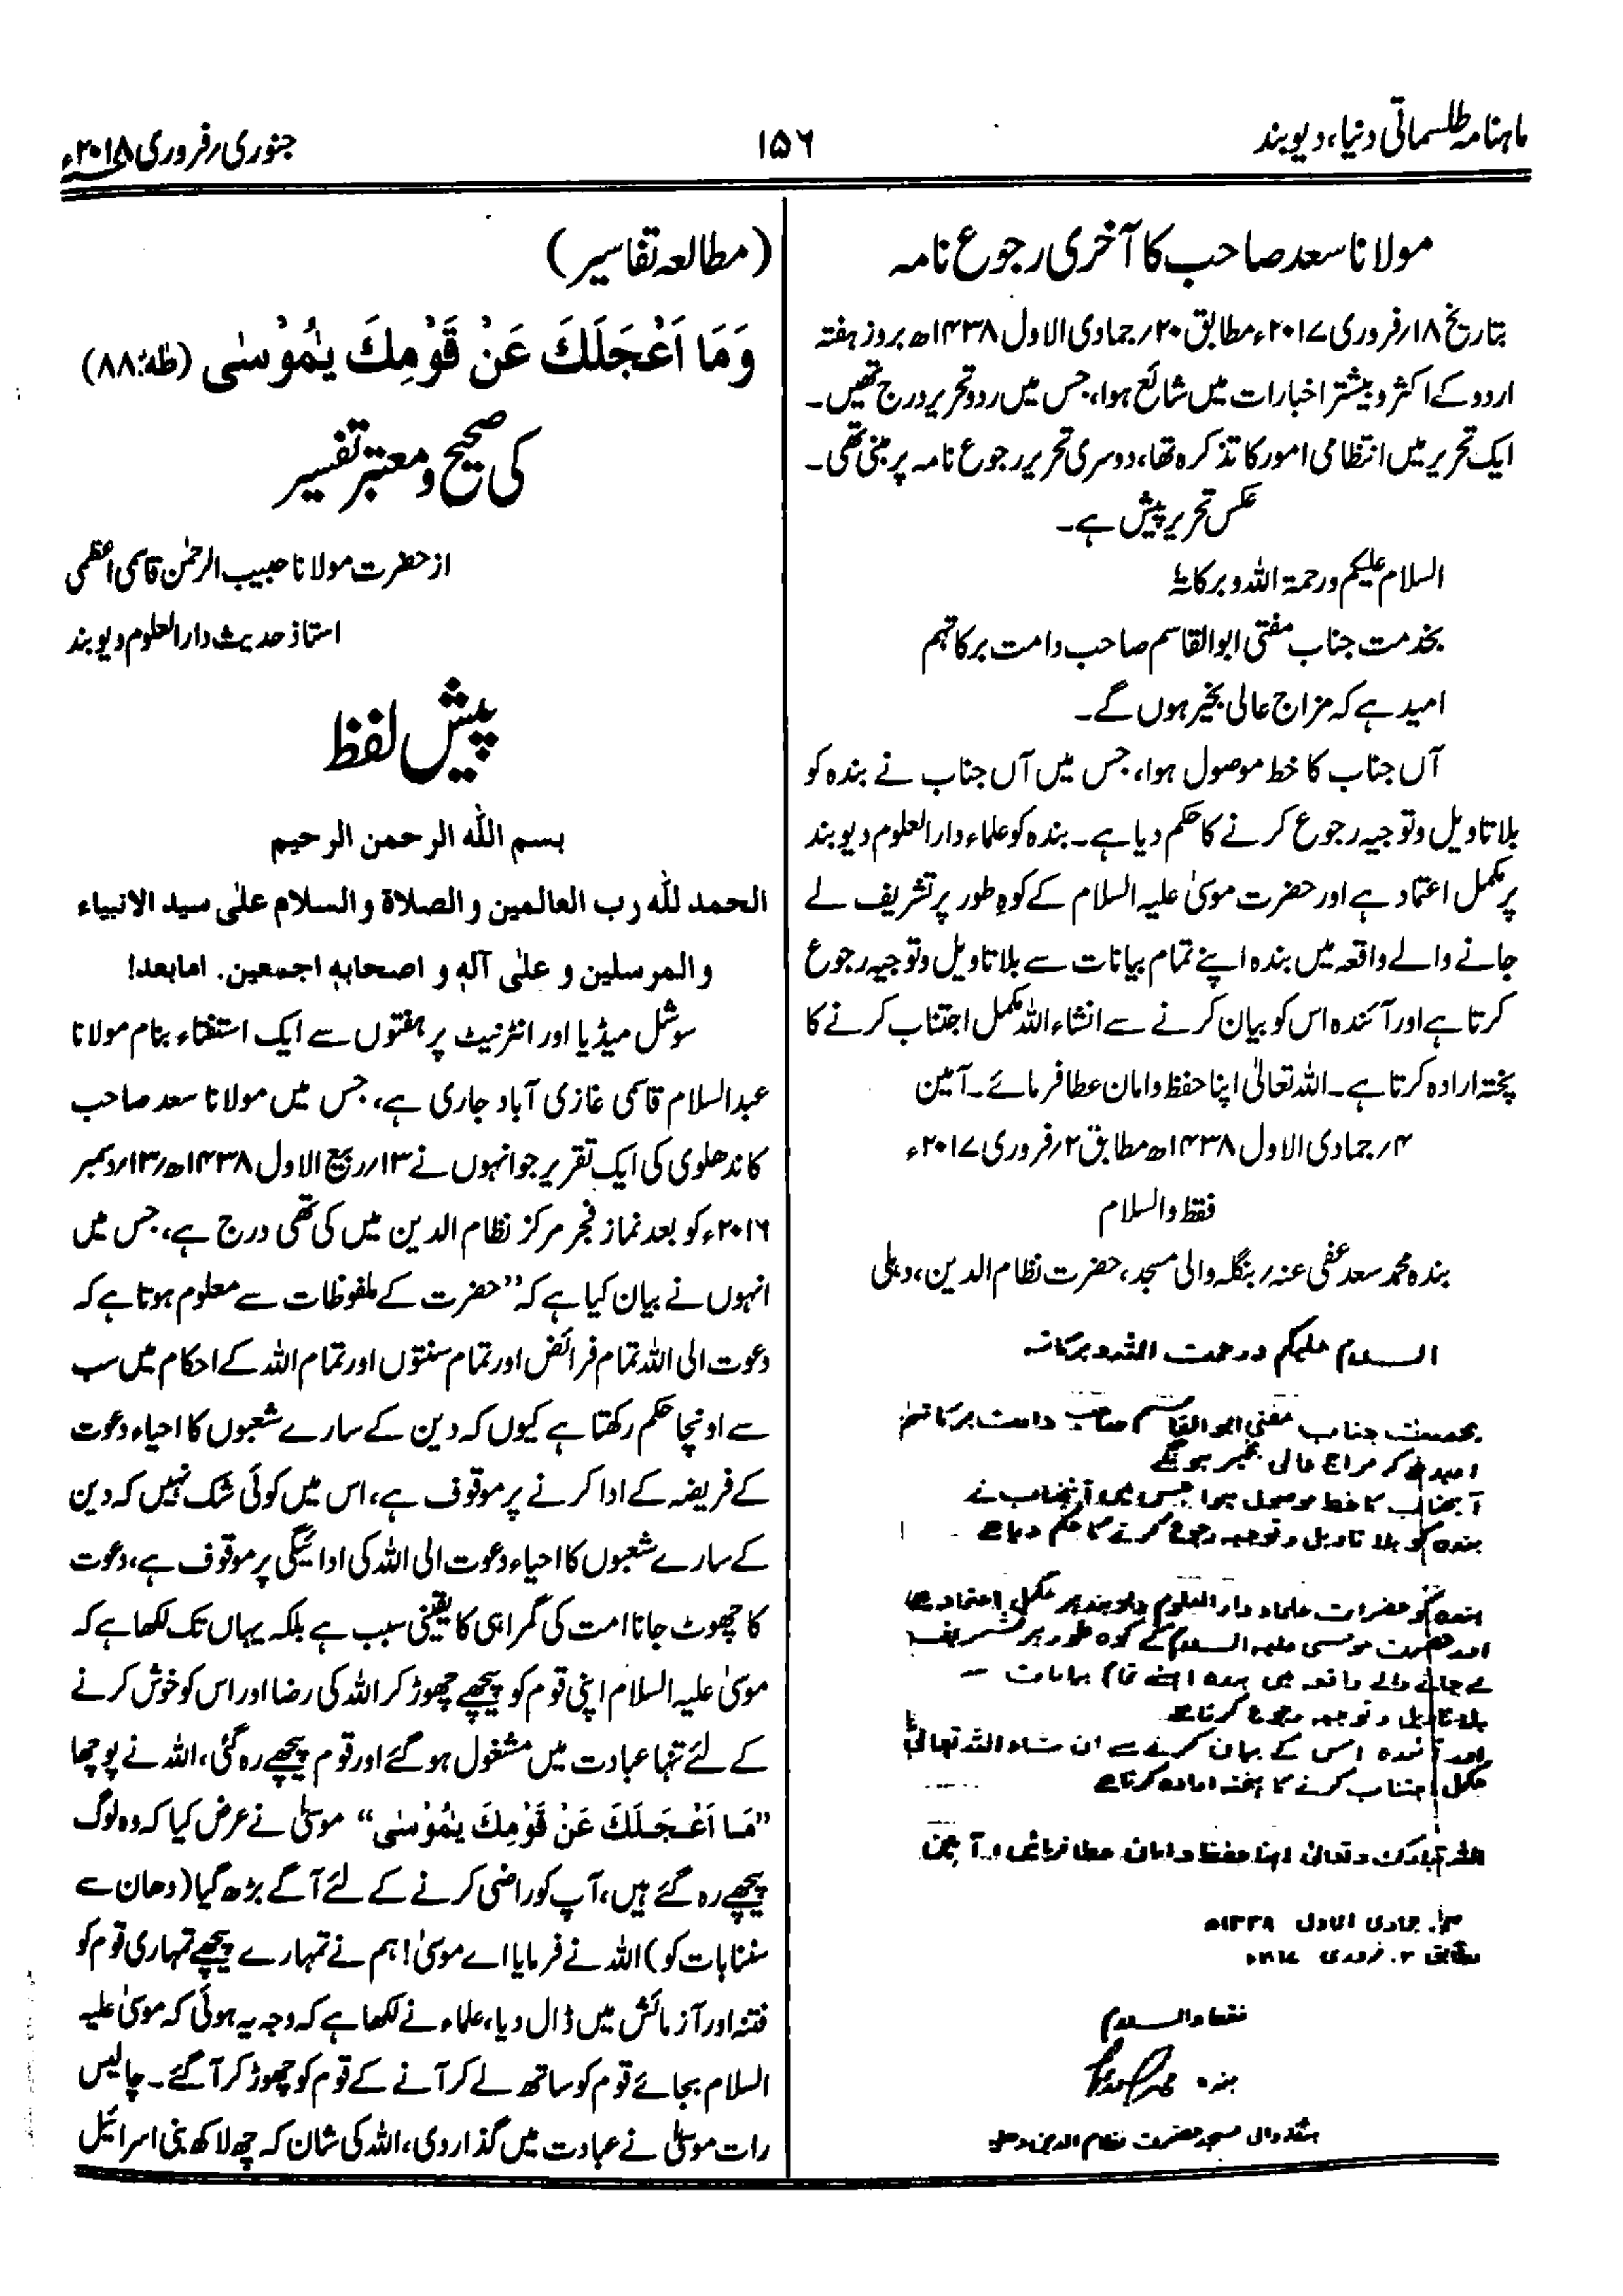 ماہنامہ طلسماتی دنیا، دیوبند
۱۵۶
جنوری؍فروری ۲۰۱۸ء
مولانا سعد صاحب کا آخری رجوع نامہ
بتاریخ ۱۸؍فروری ۲۰۱۷ء مطابق ۲۰؍جمادی الاول ۱۴۳۸ھ بروز ہفتہ
اردو کے اکثر و بیشتر اخبارات میں شائع ہوا، جس میں ردو تحریر درج تھیں۔
ایک تحریر میں انتظامی امور کا تذکرہ تھا، دوسری تحریر رجوع نامہ پر مبنی تھی۔
عکس تحریر پیش ہے۔
السلام علیکم ورحمۃ اللہ وبرکاتہٗ
بخدمت جناب مفتی ابوالقاسم صاحب دامت برکاتہم
امید ہے کہ مزاج عالی بخیر ہوں گے۔
آں جناب کا خط موصول ہوا، جس میں آں جناب نے بندہ کو
بلا تاویل و توجیہ رجوع کرنے کا حکم دیا ہے۔ بندہ کو علماء دارالعلوم دیوبند
پر مکمل اعتماد ہے اور حضرت موسیٰ علیہ السلام کے کوہِ طور پر تشریف لے
جانے والے واقعہ میں بندہ اپنے تمام بیانات سے بلا تاویل و توجیہ رجوع
کرتا ہے اور آئندہ اس کو بیان کرنے سے انشاء اللہ مکمل اجتناب کرنے کا
پختہ ارادہ کرتا ہے۔ اللہ تعالیٰ اپنا حفظ و امان عطا فرمائے۔ آمین
۴؍جمادی الاول ۱۴۳۸ھ مطابق ۲؍فروری ۲۰۱۷ء
فقط والسلام
بندہ محمد سعد عفی عنہ؍بنگلہ والی مسجد، حضرت نظام الدین، دہلی
السلام علیکم ورحمت اللہ وبرکاتہ
بخدمت جناب مفتی ابوالقاسم صاحب دامت برکاتہم
امید ہے کہ مزاج عالی بخیر ہونگے
آنجناب کا خط موصول ہوا جس میں آنجناب نے
بندہ کو بلا تاویل و توجیہ رجوع کرنے کا حکم دیا ہے
بندہ کو حضرات علماء دار العلوم دیوبند پر مکمل اعتماد ہے
اور حضرت موسی علیہ السلام کے کوہ طور پر تشریف
لے جانے والے واقعہ میں بندہ اپنے تمام بیانات سے
بلا تاویل و توجیہ رجوع کرتا ہے
اور آئندہ اس کے بیان کرنے سے ان شاء اللہ تعالیٰ
مکمل اجتناب کرنے کا پختہ ارادہ کرتا ہے
اللہ تبارک و تعالی اپنا حفظ و امان عطا فرمائیں۔ آمین
۴۔ جمادی الاول ۱۴۳۸ھ
مطابق ۲۔ فروری ۲۰۱۷ء
فقط والسلام
بندہ محمد سعد
بنگلہ والی مسجد حضرت نظام الدین دہلی
(مطالعہ تفاسیر)
وَمَا اَعْجَلَكَ عَنْ قَوْمِكَ يٰمُوْسٰى (طٰہٰ:۸۸)
کی صحیح و معتبر تفسیر
از حضرت مولانا حبیب الرحمٰن قاسمی اعظمی
استاذ حدیث دارالعلوم دیوبند
پیش لفظ
بسم اللہ الرحمن الرحیم
الحمد للّٰہ رب العالمین والصلاۃ والسلام علٰی سید الانبیاء
والمرسلین و علٰی آلہٖ و اصحابہٖ اجمعین. امابعد!
سوشل میڈیا اور انٹرنیٹ پر ہفتوں سے ایک استفتاء بنام مولانا
عبدالسلام قاسمی غازی آباد جاری ہے، جس میں مولانا سعد صاحب
کاندھلوی کی ایک تقریر جو انہوں نے ۱۳؍ربیع الاول ۱۴۳۸ھ؍۱۳؍دسمبر
۲۰۱۶ء کو بعد نماز فجر مرکز نظام الدین میں کی تھی درج ہے، جس میں
انہوں نے بیان کیا ہے کہ ’’حضرت کے ملفوظات سے معلوم ہوتا ہے کہ
دعوت الی اللہ تمام فرائض اور تمام سنتوں اور تمام اللہ کے احکام میں سب
سے اونچا حکم رکھتا ہے کیوں کہ دین کے سارے شعبوں کا احیاء دعوت
کے فریضہ کے ادا کرنے پر موقوف ہے، اس میں کوئی شک نہیں کہ دین
کے سارے شعبوں کا احیاء دعوت الی اللہ کی ادائیگی پر موقوف ہے، دعوت
کا چھوٹ جانا امت کی گمراہی کا یقینی سبب ہے بلکہ یہاں تک لکھا ہے کہ
موسیٰ علیہ السلام اپنی قوم کو پیچھے چھوڑ کر اللہ کی رضا اور اس کو خوش کرنے
کے لئے تنہا عبادت میں مشغول ہو گئے اور قوم پیچھے رہ گئی، اللہ نے پوچھا
’’مَا اَعْجَلَكَ عَنْ قَوْمِكَ يٰمُوْسٰى‘‘ موسیٰ نے عرض کیا کہ وہ لوگ
پیچھے رہ گئے ہیں، آپ کو راضی کرنے کے لئے آگے بڑھ گیا (دھان سے
سننا بات کو) اللہ نے فرمایا اے موسیٰ! ہم نے تمہارے پیچھے تمہاری قوم کو
فتنہ اور آزمائش میں ڈال دیا، علماء نے لکھا ہے کہ وجہ یہ ہوئی کہ موسیٰ علیہ
السلام بجائے قوم کو ساتھ لے کر آنے کے قوم کو چھوڑ کر آگئے۔ چالیس
رات موسیٰ نے عبادت میں گذار دی، اللہ کی شان کہ چھ لاکھ بنی اسرائیل